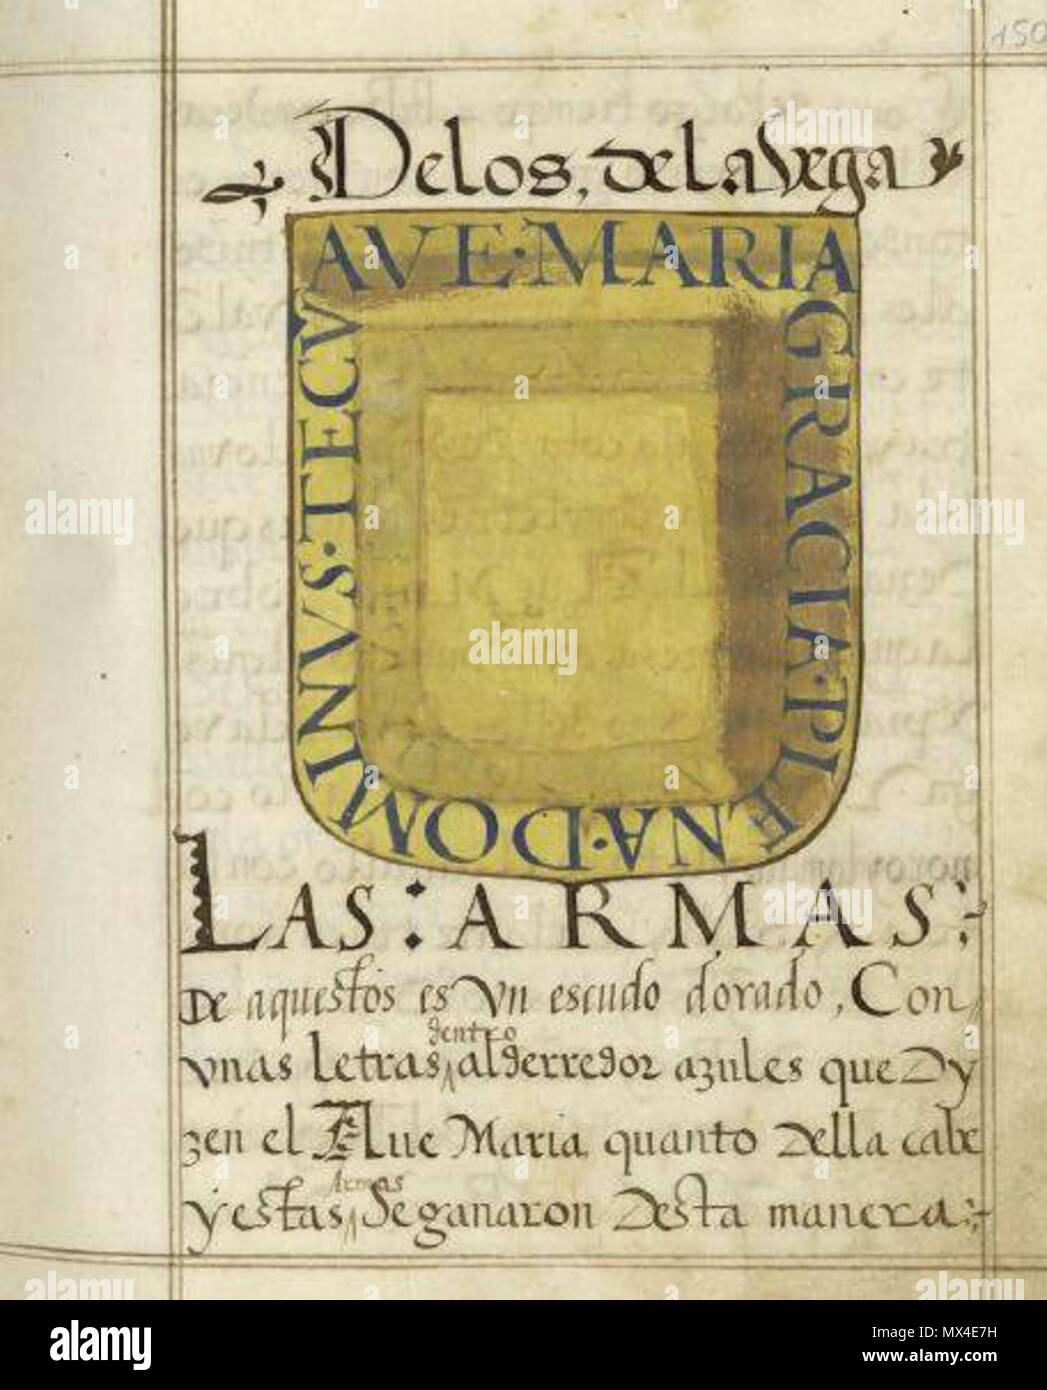 150
De los, de la Vega
AVE·MARIA
GRACIA·PLENA·DOMINVS·TECV
LAS: ARMAS
De aquestos es Vn escudo dorado, Con
vnas letras dentro alderredor azules que Dy
zen el Aue Maria quanto della cabe
y estas Armas Se ganaron Desta manera
alamy
Image ID: MX4E7H
www.alamy.com